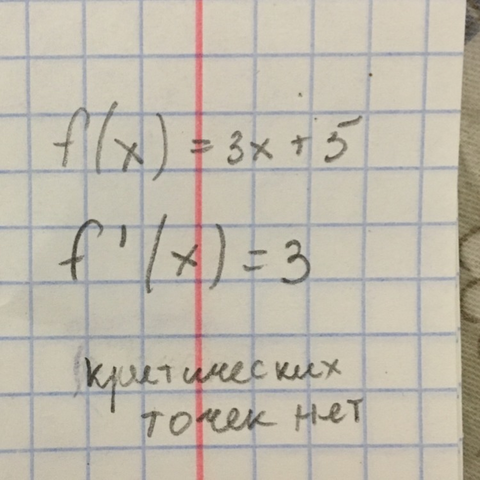 f(x) = 3x + 5
f'(x) = 3
критических
точек нет